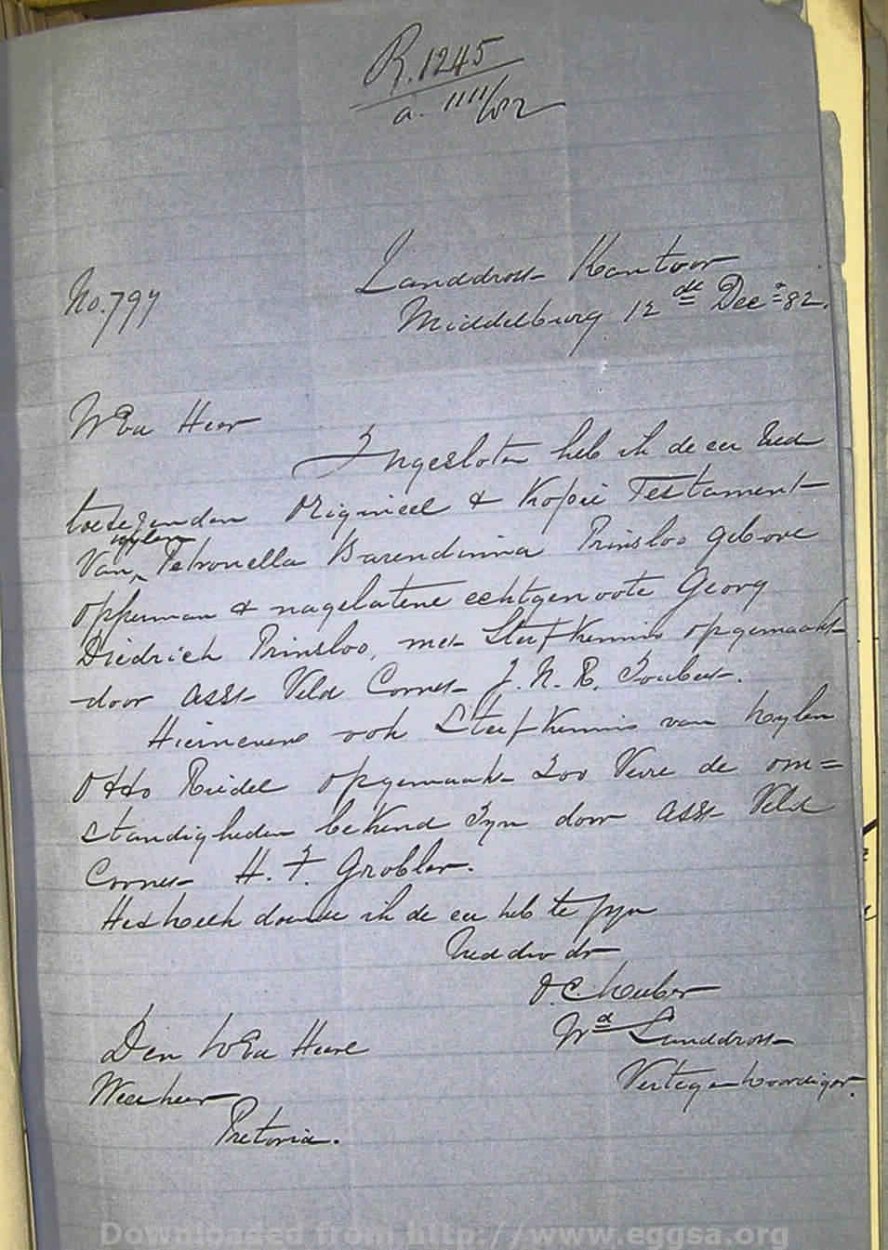 R.1245
a. 1111/82
Landdrost Kantoor
No. 797
Middelburg 12de Dec 82.
WEd Heer
Ingesloten heb ik de eer Ued
toetezenden Origineel & Kopie Testament
van wylen Petronella Barendinna Prinsloo gebore
Opperman & nagelatene echtgenoote Georg
Diedrich Prinsloo, met Sterfkennis opgemaakt
door Asst Veld Cornet J. N. R. Joubert.
Hiernevens ook Sterfkennis van wylen
Otto Riedel opgemaakt Zoo Verre de om=
standigheden bekend Zyn door Asst Veld
Cornet H. F. Grobler.
ik de eer heb te zyn
Ued dw dr
O. C.
Wd Landdrost
Vertegenwoordiger.
Den WEd Heere
Weesheer
Pretoria.
Downloaded from http://www.eggsa.org